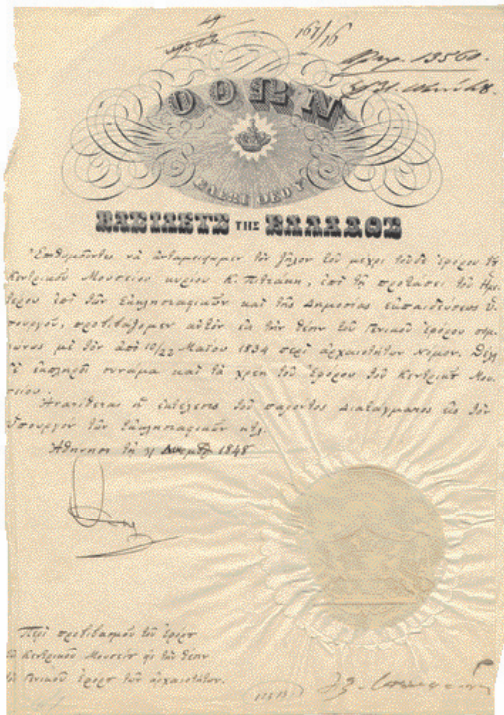 161/16
Αρ. 13560.
ΟΘΩΝ
ΕΛΕΩ ΘΕΟΥ
ΒΑΣΙΛΕΥΣ ΤΗΣ ΕΛΛΑΔΟΣ
Ἐπιθυμοῦντες νὰ ἀνταμείψωμεν τὸν ζῆλον τοῦ μέχρι τοῦδε ἐφόρου τοῦ
Κεντρικοῦ Μουσείου κυρίου Κ. Πιττάκη, ἐπὶ τῇ προτάσει τοῦ Ἡμε
τέρου ἐπὶ τῶν Ἐκκλησιαστικῶν καὶ τῆς Δημοσίας ἐκπαιδεύσεως Ὑ
πουργοῦ, προβιβάζομεν αὐτὸν εἰς τὴν θέσιν τοῦ Γενικοῦ ἐφόρου συμ
φώνως μὲ τὸν ἀπὸ 10/22 Μαΐου 1834 περὶ ἀρχαιοτήτων νόμον. Θέλ
ει ἐκπληροῖ συνάμα καὶ τὰ χρέη τοῦ Ἐφόρου τοῦ Κεντρικοῦ Μου
σείου.
Ἀνατίθεται ἡ ἐκτέλεσις τοῦ παρόντος Διατάγματος εἰς τὸν
Ὑπουργὸν τῶν Ἐκκλησιαστικῶν κτλ
Ἀθήνησι τῇ 31 1848
Ὄθων
Περὶ προβιβασμοῦ τοῦ ἐφόρου
τοῦ Κεντρικοῦ Μουσείου εἰς τὴν θέσιν
τοῦ Γενικοῦ ἐφόρου τῶν ἀρχαιοτήτων.